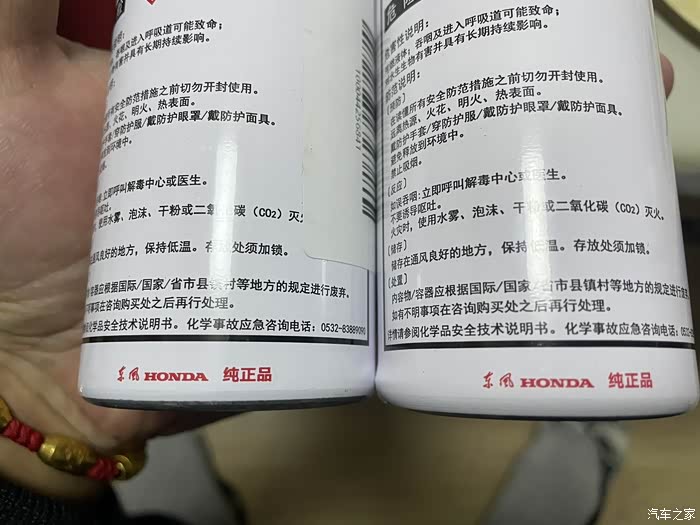 险
说明：
吞咽及进入呼吸道可能致命；
有害并具有长期持续影响。
安全防范措施之前切勿开封使用。
火花、明火、热表面。
/穿防护服/戴防护眼罩/戴防护面具。
环境中。
立即呼叫解毒中心或医生。
呕吐。
使用水雾、泡沫、干粉或二氧化碳（CO₂）灭火
良好的地方，保持低温。存放处须加锁。
容器应根据国际/国家/省市县镇村等地方的规定进行废弃。
明事项在咨询购买处之后再行处理。
参阅化学品安全技术说明书。化学事故应急咨询电话：0532-83889090
东风 HONDA 纯正品
危险
危害性说明：
液体；吞咽及进入呼吸道可能致命；
水生生物有害并具有长期持续影响。
防范说明：
[预防]
在读懂所有安全防范措施之前切勿开封使用。
远离热源、火花、明火、热表面。
戴防护手套/穿防护服/戴防护眼罩/戴防护面具。
避免释放到环境中。
禁止吸烟。
[反应]
如误吞咽：立即呼叫解毒中心或医生。
不要诱导呕吐。
火灾时，使用水雾、泡沫、干粉或二氧化碳（CO₂）灭火。
[储存]
储存在通风良好的地方，保持低温。存放处须加锁。
[处置]
内容物/容器应根据国际/国家/省市县镇村等地方的规定进行废弃
如有不明事项在咨询购买处之后再行处理。
详情请参阅化学品安全技术说明书。化学事故应急咨询电话：0532-8
东风 HONDA 纯正品
汽车之家